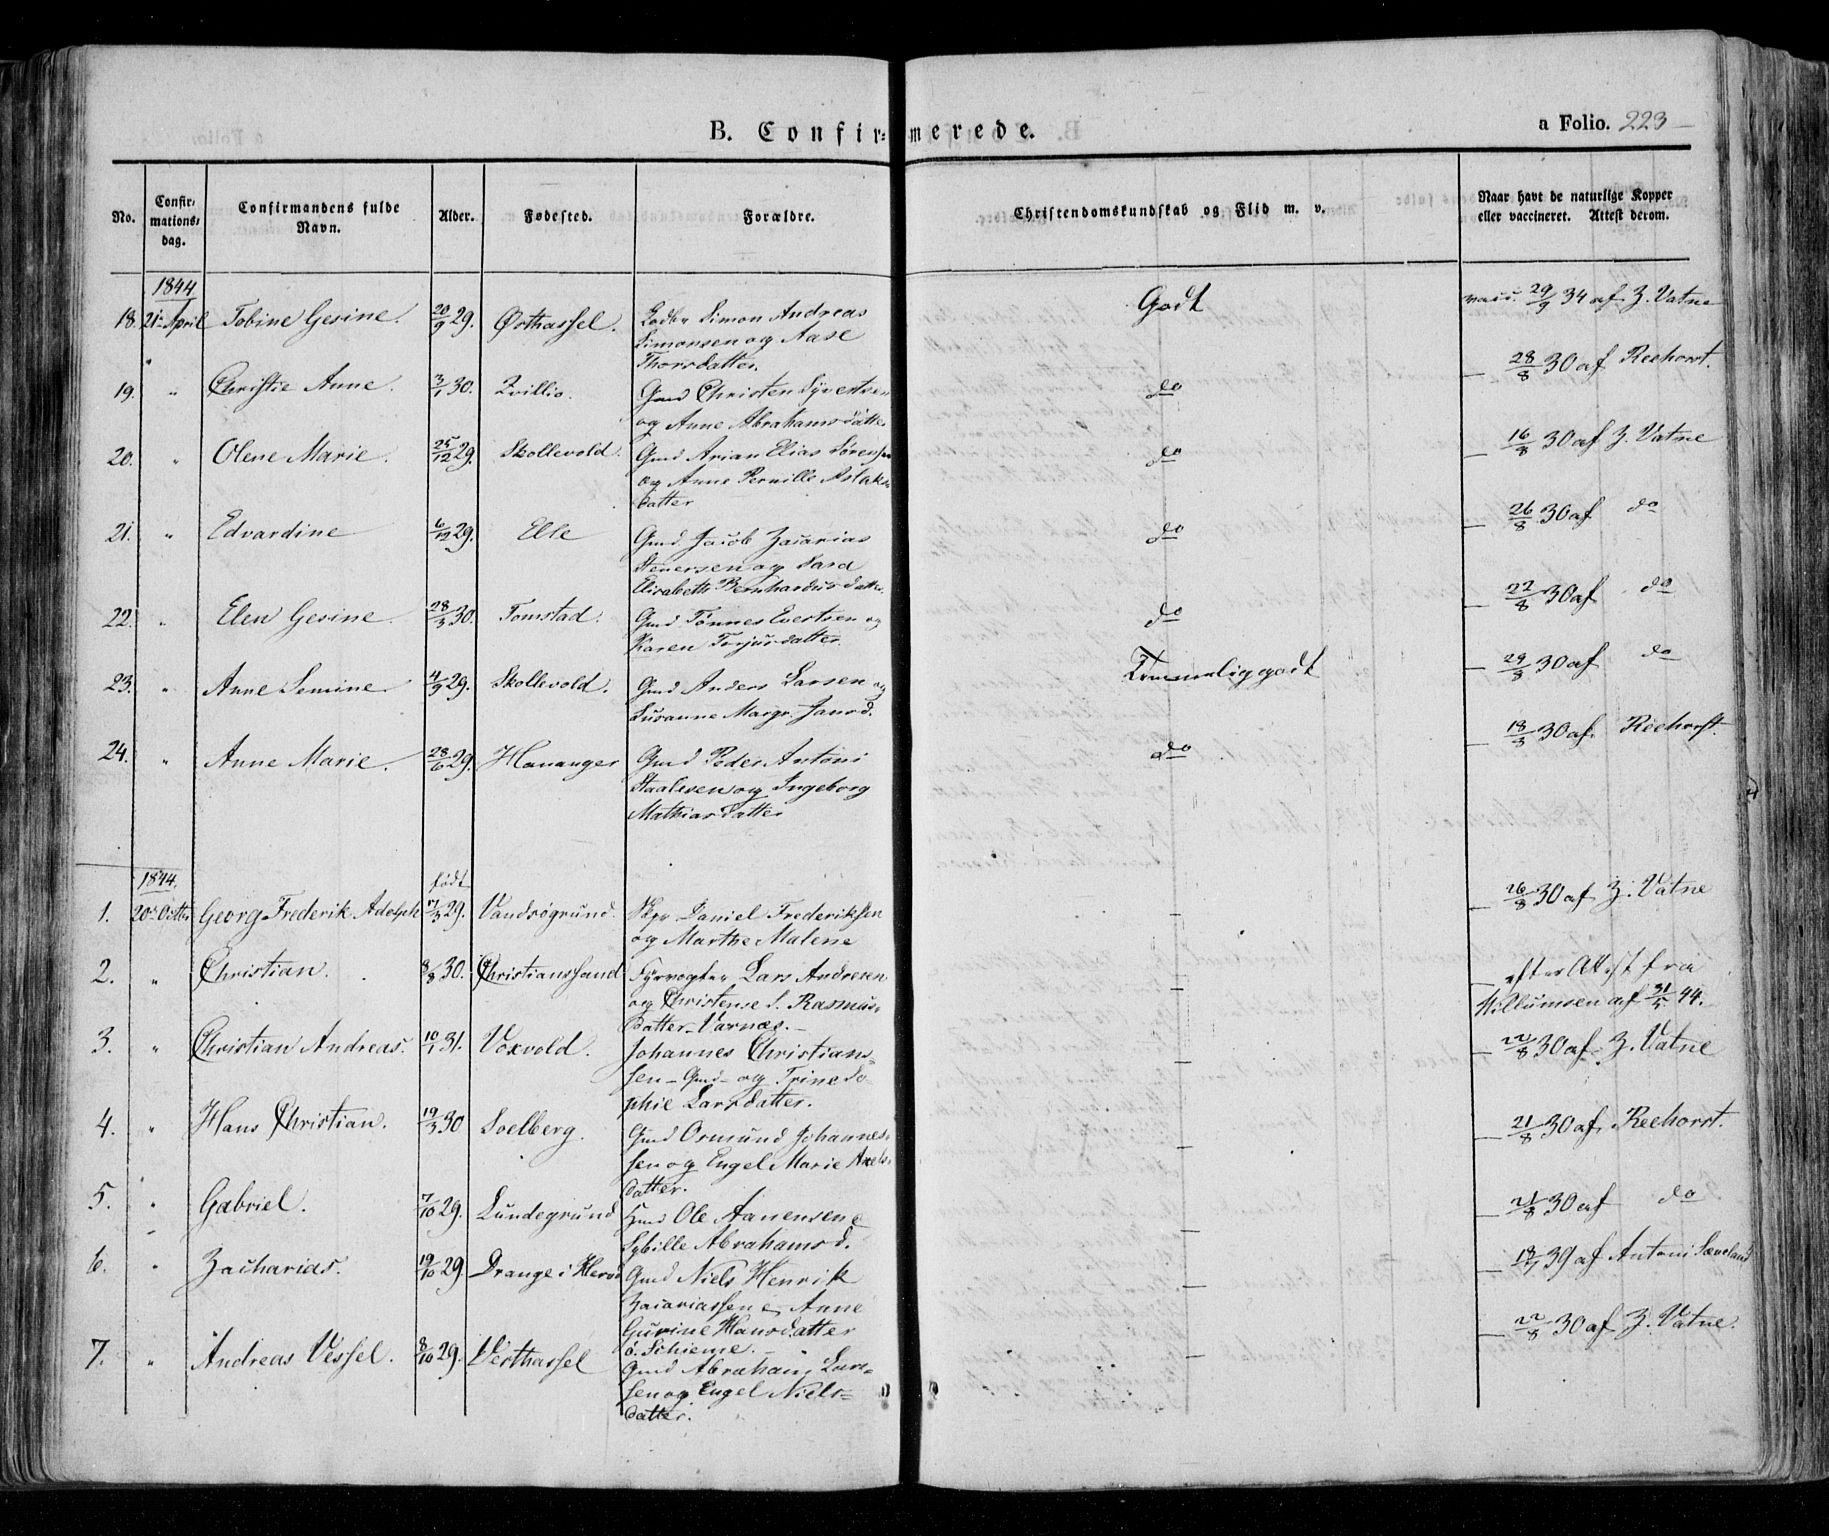 B. Confir-merede.
a Folio. 223
No. Confir-mations-dag. Confirmandens fulde Navn. Alder. Fødested. Forældre. Christendomskundskab og Flid m. v. Naar havt de naturlige Kopper eller vaccineret. Attest derom.
1844
18. 21 April Tobine Gesine. 20/9 29. Østhassel. Simon Andreas Godt vacc. 29/9 34 af Z. Vatne
Simonsen og Aase
Thorsdatter.
19. " Christie Anne. 3/1 30. Zvillio. Gmd Christen Syvertsen do 28/8 30 af Reehorst.
og Anne Abrahamsdatter
20. " Olene Marie. 25/12 29. Skollevold. Gmd Arian Elias Sørensen do 16/8 30 af Z. Vatne
og Anne Pernille Aslaks-
datter
21. " Edvardine 6/12 29. Elle Gmd. Jacob Zacarias do 26/8 30 af do
Stenersen og Sara
Elisabeth Bernhardusdatter
22. " Elen Gesine 28/3 30. Tomstad. Gmd Tønnes Evertsen og do 22/8 30 af do
Karen Torjusdatter
23. " Anne Semine 4/9 29. Skollevold. Gmd Anders Larsen og Temmelig godt 29/8 30 af do
Susanne Margr. Jansd.
24. " Anne Marie. 28/6 29. Hananger Gmd Peder Antoni do 18/3 30 af. Reehorst.
Staalesen og Ingeborg
Mathiasdatter
1844. født
1. 20de Octbr Georg Frederik Adolph 29. Vandsøgrund. Daniel Frederiksen — 26/8 30 af Z. Vatne
og Marthe Malene
2. " Christian. 8/8 30. Christianssand Fyrvogter Lars Andresen — efter Attest fra
og Christense S. Rasmus- Willumsen af 31/5 44.
datter Varnæs.
3. " Christian Andreas. 10/1 31. Voxvold. Johannes Christian- — 22/8 30 af Z. Vatne
sen - Gmd - og Trine So-
phie Larsdatter.
4. " Hans Christian. 19/3 30 Soelberg. Gmd Osmund Johannes- — 21/8 30 af. Reehorst.
sen og Engel Marie Axels-
datter.
5. " Gabriel. 7/10 29. Lundegrund Hmd Ole Aanensen e — 21/8 30 af do
Sybille Abrahamsd.
6. " Zacharias. 19/10 29. Drange i Herod Gmd Niels Henrik — 18/7 39 af Antoni Sæveland
Zacariassen e Anne
Gurine Hansdatter
7. " Andreas Vessel. 8/10 29. Vesthassel Gmd Abraham Lars- — 22/8 30 af Z. Vatne.
sen og Engel Niels-
datter.